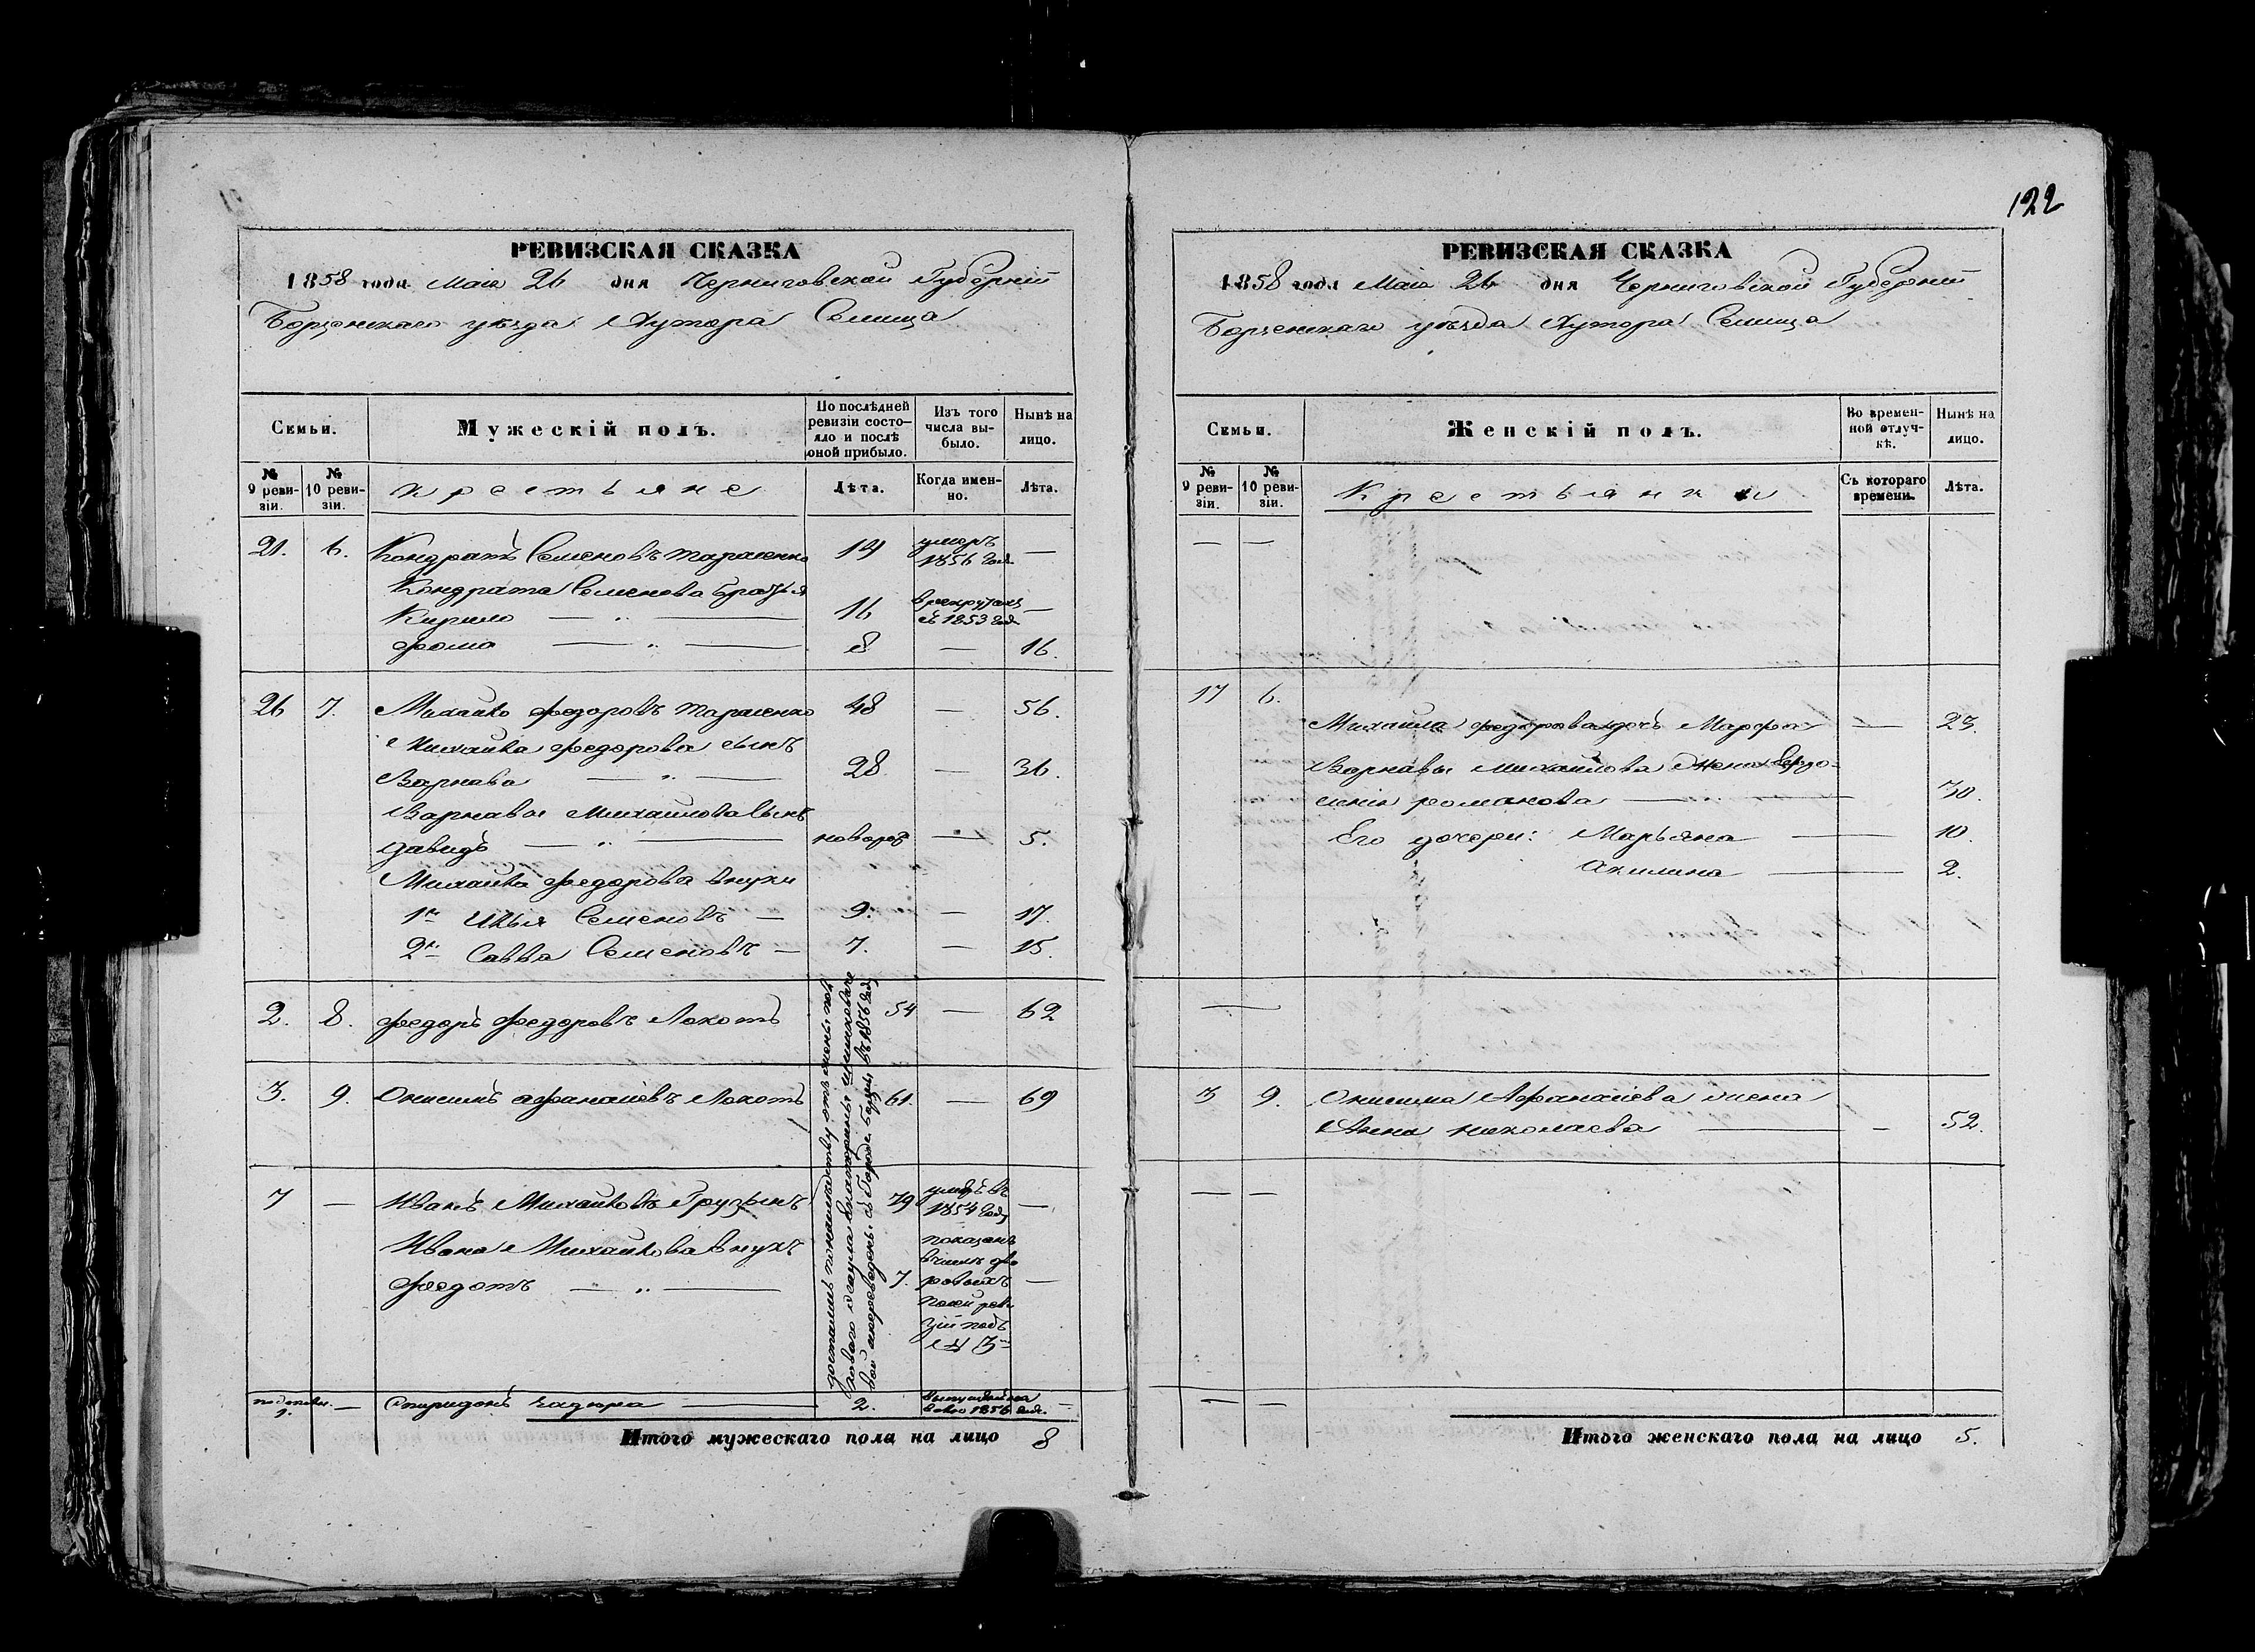 122
РЕВИЗСКАЯ СКАЗКА
1858 года Мая 26 дня Черниговской Губернiи
Борзенскаго уѣзда Хутора Селища
Семьи.
Мужескiй полъ.
По послѣдней ревизiи состояло и послѣ оной прибыло.
Изъ того числа выбыло.
Нынѣ на лицо.
№ 9 ревизiи.
№ 10 ревизiи.
крестьяне
Лѣта.
Когда именно.
Лѣта.
21. 6. Кондратъ Семеновъ Тарасенко 19 умеръ 1856 года —
Кондрата Семенова братья
Кирило — „ — 16 в рекрутахъ съ 1853 года —
Фома — „ — 8 — 16.
26 7. Михайло Федоровъ Тарасенко 48 — 56.
Михайла Федорова сынъ
Варнава — „ — 28 — 36.
Варнавы Михайлова сынъ
Давидъ — „ — новорож — 5.
Михайла Федорова внуки
1й Илья Семеновъ — 9. — 17.
2й Савва Семеновъ — 7. — 15.
2. 8. Федоръ Федоровъ Локоть 54 — 62
3. 9. Онисимъ Афанасiевъ Локоть 61. — 69
7 — Иванъ Михайловъ Грузинъ 79 умеръ въ 1854 году —
Ивана Михайлова внукъ
Федотъ — „ — 7. показанъ
въ числѣ дво
ровыхъ
по сей реви
зiи подъ
№ 3 —
— Спиридонъ Чадюра — 2. 1856 года —
Итого мужескаго пола на лицо 8
РЕВИЗСКАЯ СКАЗКА
1858 года Мая 26 дня Черниговской Губернiи
Борзенскаго уѣзда Хутора Селища
Семьи.
Женскiй полъ.
Во временной отлучкѣ.
Нынѣ на лицо.
№ 9 ревизiи.
№ 10 ревизiи.
Крестьянки
Съ котораго времени.
Лѣта.
— —
17 6.
Михайла Федорова дочь Марфа — 23.
Варнавы Михайлова жена Федо-
сiя Романова — 30.
Его дочери: Марьяна — 10.
Акилина — 2.
—
3 9. Онисима Афанасiева жена
Анна Николаева — — 52.
— —
— —
Итого женскаго пола на лицо 5.